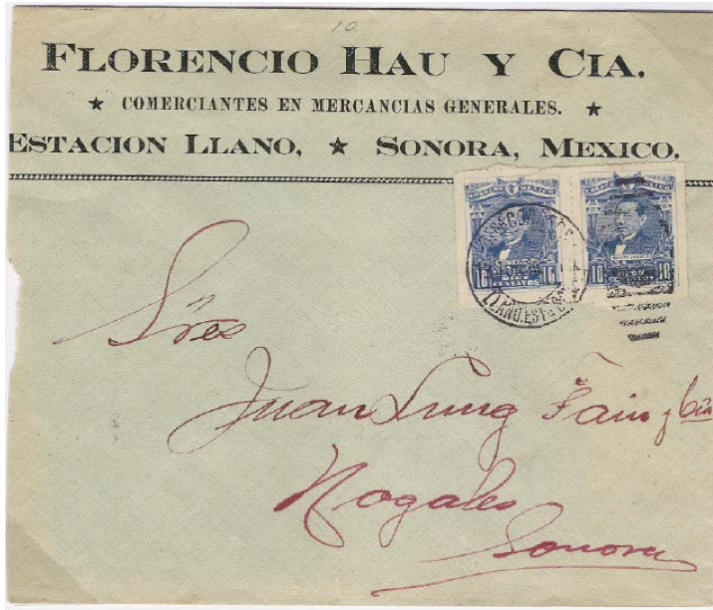 10
FLORENCIO HAU Y CIA.
★ COMERCIANTES EN MERCANCIAS GENERALES. ★
ESTACION LLANO, ★ SONORA, MEXICO.
CORREOS MEXICO
10 DIEZ CENTAVOS 10
LLANO. EST
Sres
Juan Lung Tain y Cia
Nogales
Sonora